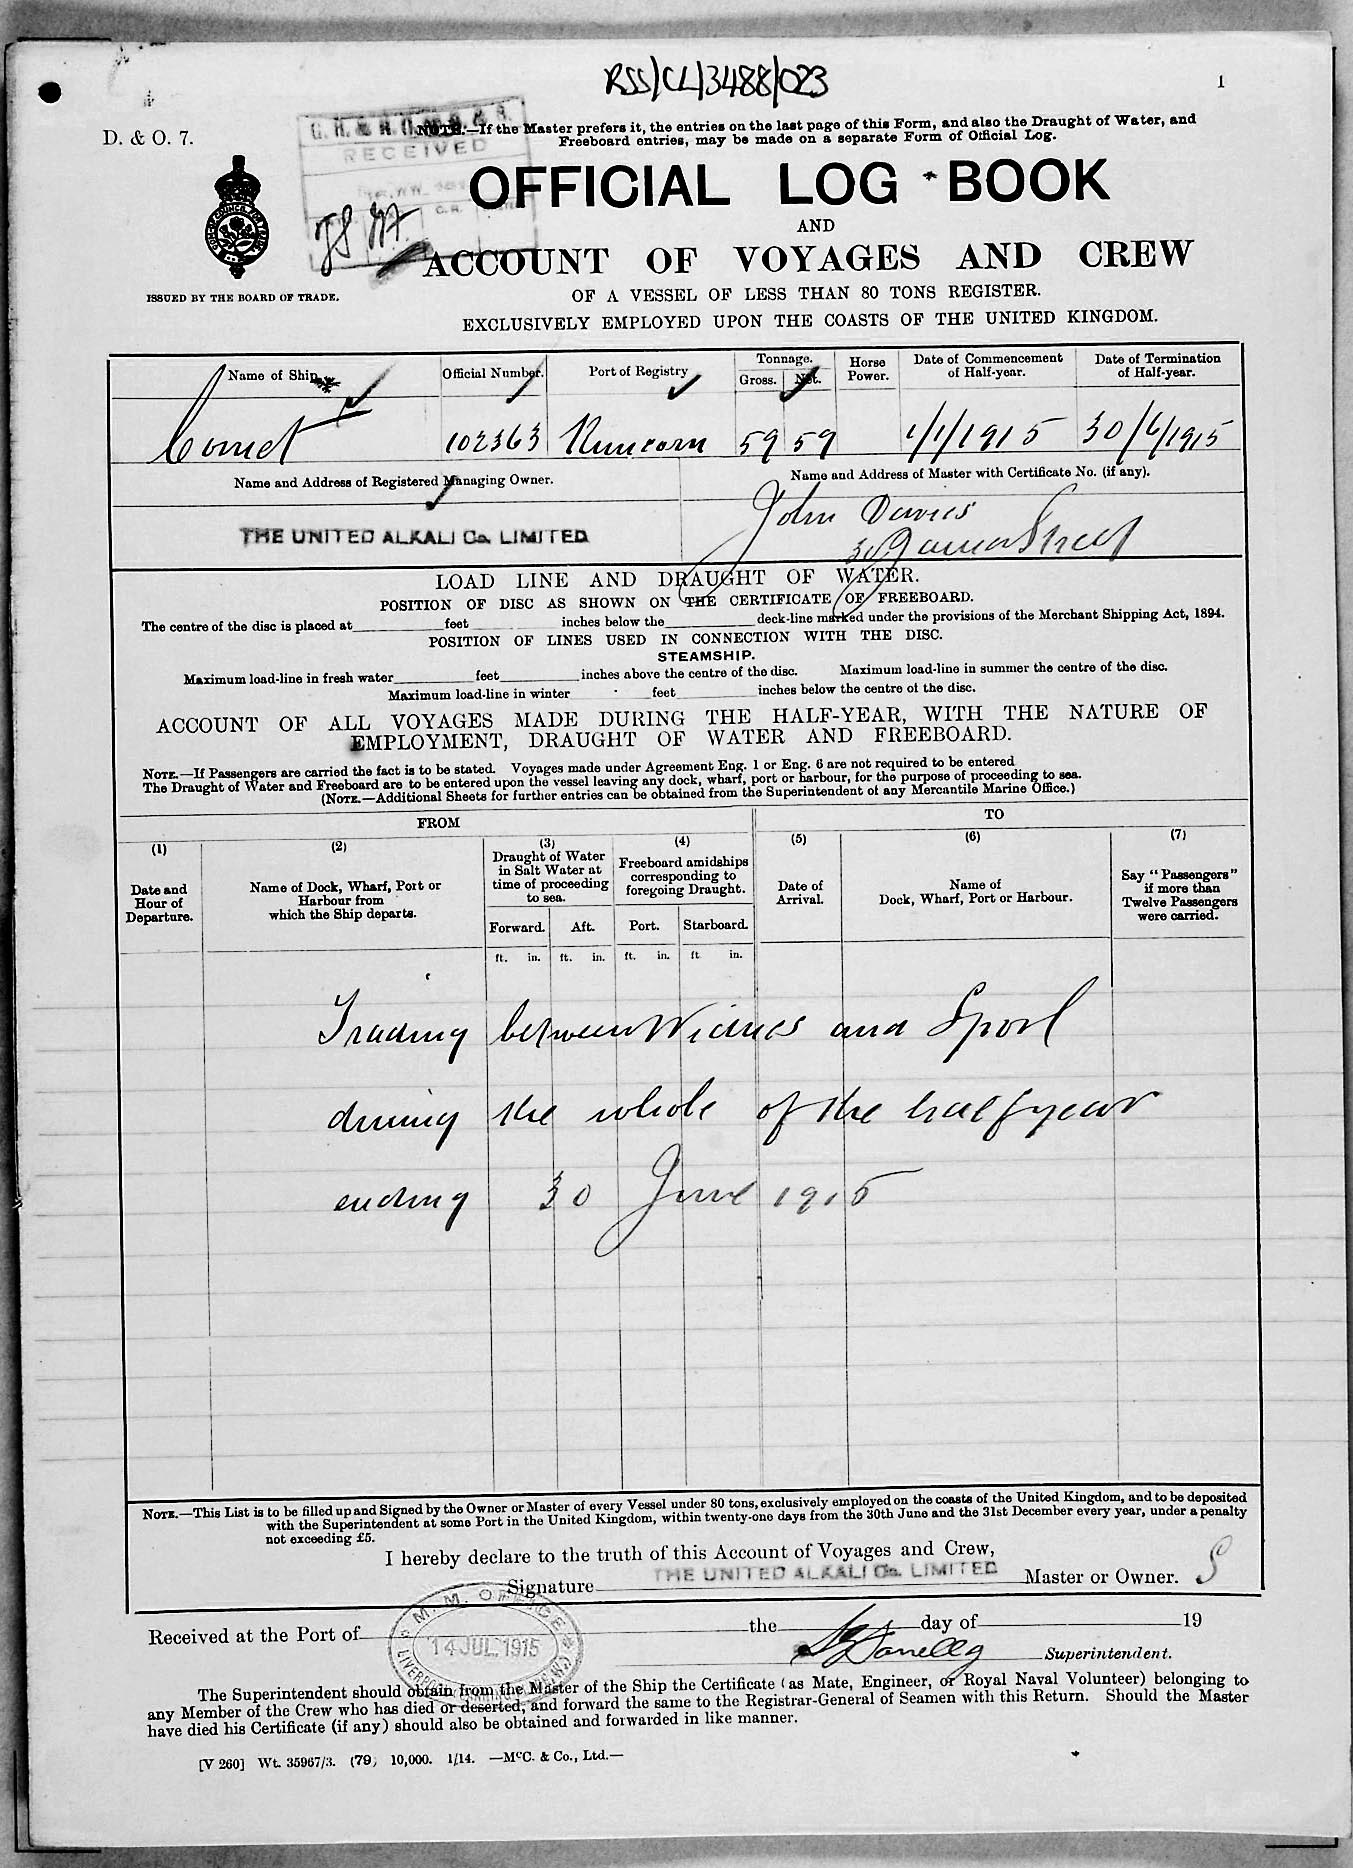 RSS/CL/3488/023
1
D. & O. 7.
RECEIVED
NOTE.—If the Master prefers it, the entries on the last page of this Form, and also the Draught of Water, and
Freeboard entries, may be made on a separate Form of Official Log.
OFFICIAL LOG BOOK
AND
ACCOUNT OF VOYAGES AND CREW
ISSUED BY THE BOARD OF TRADE.
OF A VESSEL OF LESS THAN 80 TONS REGISTER.
EXCLUSIVELY EMPLOYED UPON THE COASTS OF THE UNITED KINGDOM.
Name of Ship. Official Number. Port of Registry Tonnage. Gross. Net. Horse Power. Date of Commencement of Half-year. Date of Termination of Half-year.
Comet 102363 Runcorn 59 59 1/1/1915 30/6/1915
Name and Address of Registered Managing Owner. Name and Address of Master with Certificate No. (if any).
THE UNITED ALKALI Co. LIMITED John Davies
Street
LOAD LINE AND DRAUGHT OF WATER.
POSITION OF DISC AS SHOWN ON THE CERTIFICATE OF FREEBOARD.
The centre of the disc is placed at feet inches below the deck-line marked under the provisions of the Merchant Shipping Act, 1894.
POSITION OF LINES USED IN CONNECTION WITH THE DISC.
STEAMSHIP.
Maximum load-line in fresh water feet inches above the centre of the disc. Maximum load-line in summer the centre of the disc.
Maximum load-line in winter feet inches below the centre of the disc.
ACCOUNT OF ALL VOYAGES MADE DURING THE HALF-YEAR, WITH THE NATURE OF
EMPLOYMENT, DRAUGHT OF WATER AND FREEBOARD.
NOTE.—If Passengers are carried the fact is to be stated. Voyages made under Agreement Eng. 1 or Eng. 6 are not required to be entered
The Draught of Water and Freeboard are to be entered upon the vessel leaving any dock, wharf, port or harbour, for the purpose of proceeding to sea.
(NOTE.—Additional Sheets for further entries can be obtained from the Superintendent of any Mercantile Marine Office.)
FROM TO
(1) (2) (3) (4) (5) (6) (7)
Date and Hour of Departure. Name of Dock, Wharf, Port or Harbour from which the Ship departs. Draught of Water in Salt Water at time of proceeding to sea. Freeboard amidships corresponding to foregoing Draught. Date of Arrival. Name of Dock, Wharf, Port or Harbour. Say "Passengers" if more than Twelve Passengers were carried.
Forward. Aft. Port. Starboard.
ft. in. ft. in. ft. in. ft. in.
Trading between Widnes and Lpool
during the whole of the half year
ending 30 June 1915
NOTE.—This List is to be filled up and Signed by the Owner or Master of every Vessel under 80 tons, exclusively employed on the coasts of the United Kingdom, and to be deposited
with the Superintendent at some Port in the United Kingdom, within twenty-one days from the 30th June and the 31st December every year, under a penalty
not exceeding £5.
I hereby declare to the truth of this Account of Voyages and Crew,
Signature THE UNITED ALKALI Co. LIMITED Master or Owner.
M. M. OFFICE
14 JUL. 1915
Received at the Port of the day of 19
Superintendent.
The Superintendent should obtain from the Master of the Ship the Certificate (as Mate, Engineer, or Royal Naval Volunteer) belonging to
any Member of the Crew who has died or deserted, and forward the same to the Registrar-General of Seamen with this Return. Should the Master
have died his Certificate (if any) should also be obtained and forwarded in like manner.
[V 260] Wt. 35967/3. (79) 10,000. 1/14. —McC. & Co., Ltd.—